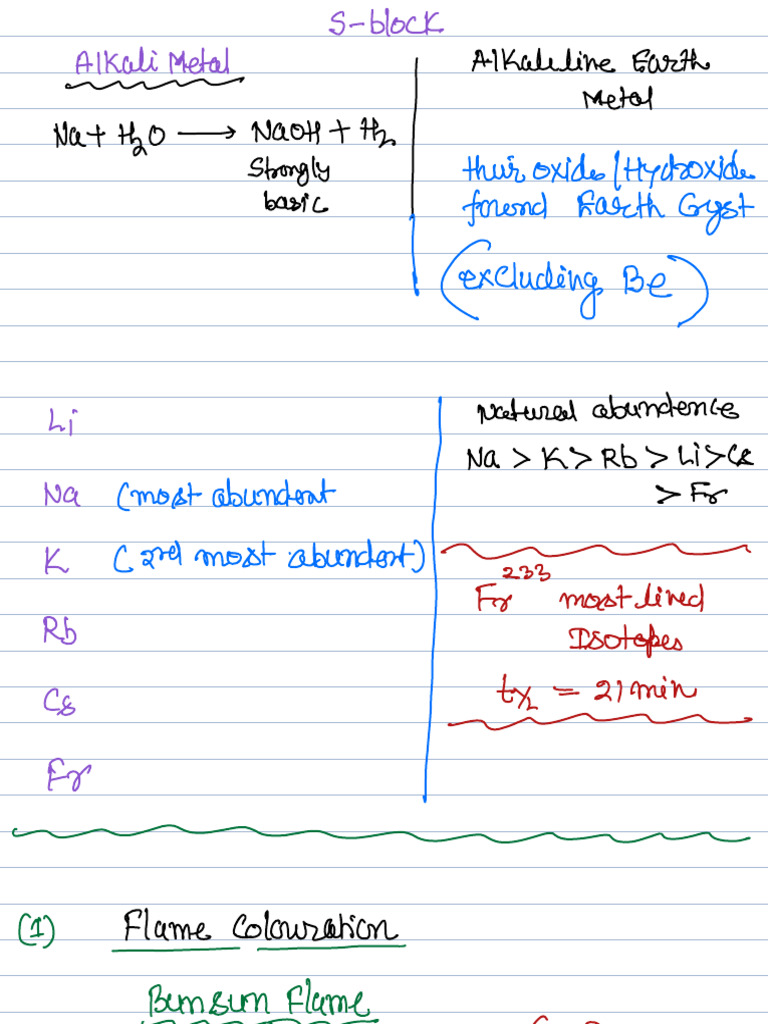 S-block
Alkali Metal
Na + H2O ⟶ NaOH + H2
Strongly
basic
Alkaluline Earth
Metal
thuir oxide/Hydroxide
found Earth Cryst
(excluding Be)
Li
Na (most abundent
K (2nd most abundent)
Rb
Cs
Fr
Natural abundence
Na > K > Rb > Li > Cs
> Fr
Fr^233 most lived
Isotopes
t1/2 = 21 min
(1) Flame Colouration
Bunsun Flame